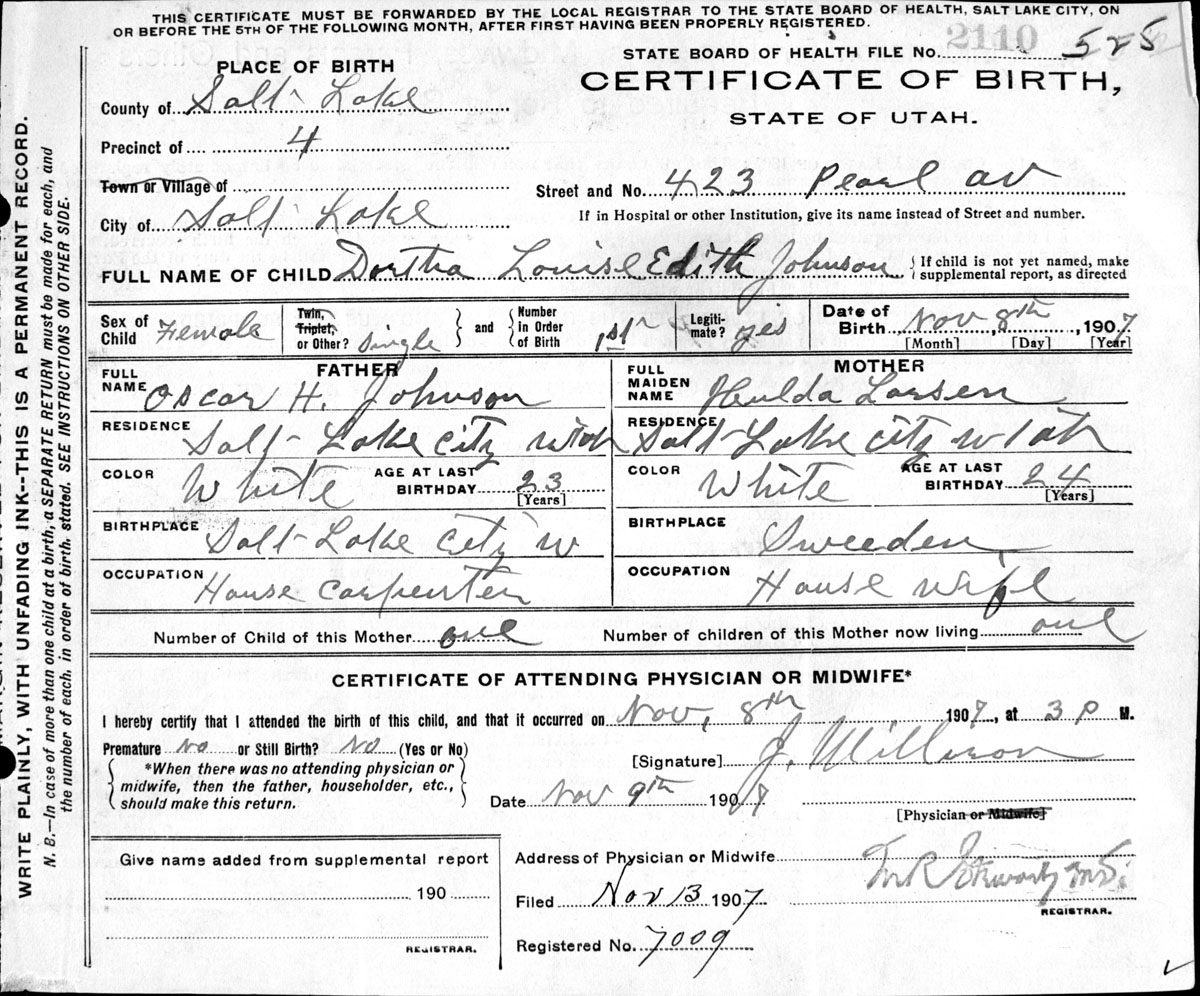 THIS CERTIFICATE MUST BE FORWARDED BY THE LOCAL REGISTRAR TO THE STATE BOARD OF HEALTH, SALT LAKE CITY, ON
OR BEFORE THE 5TH OF THE FOLLOWING MONTH, AFTER FIRST HAVING BEEN PROPERLY REGISTERED.
2110
STATE BOARD OF HEALTH FILE No. 525
PLACE OF BIRTH
CERTIFICATE OF BIRTH,
STATE OF UTAH.
County of Salt Lake
Precinct of 4
Town or Village of
Street and No. 423 Pearl av
City of Salt Lake
If in Hospital or other Institution, give its name instead of Street and number.
FULL NAME OF CHILD Dortha Louise Edith Johnson { If child is not yet named, make supplemental report, as directed
Sex of Child Female
Twin, Triplet, or Other? Single
and Number in Order of Birth 1st
Legitimate? yes
Date of Birth Nov, 8th, 1907
[Month] [Day] [Year]
FATHER
MOTHER
FULL NAME Oscar H. Johnson
FULL MAIDEN NAME Hulda Larsen
RESIDENCE Salt Lake City Utah
RESIDENCE Salt Lake City Utah
COLOR White
AGE AT LAST BIRTHDAY 23 [Years]
COLOR White
AGE AT LAST BIRTHDAY 24 [Years]
BIRTHPLACE Salt Lake City U
BIRTHPLACE Sweeden
OCCUPATION House Carpenter
OCCUPATION House wife
Number of Child of this Mother one
Number of children of this Mother now living one
CERTIFICATE OF ATTENDING PHYSICIAN OR MIDWIFE*
I hereby certify that I attended the birth of this child, and that it occurred on Nov, 8th, 1907, at 3 P M.
Premature No or Still Birth? No (Yes or No)
[Signature]
*When there was no attending physician or
midwife, then the father, householder, etc.,
should make this return.
Date Nov 9th 1907
[Physician or Midwife]
Give name added from supplemental report
190
REGISTRAR.
Address of Physician or Midwife
Filed Nov 13 1907
REGISTRAR.
Registered No. 7009
WRITE PLAINLY, WITH UNFADING INK--THIS IS A PERMANENT RECORD.
N. B.—In case of more than one child at a birth, a SEPARATE RETURN must be made for each, and
the number of each, in order of birth, stated. SEE INSTRUCTIONS ON OTHER SIDE.